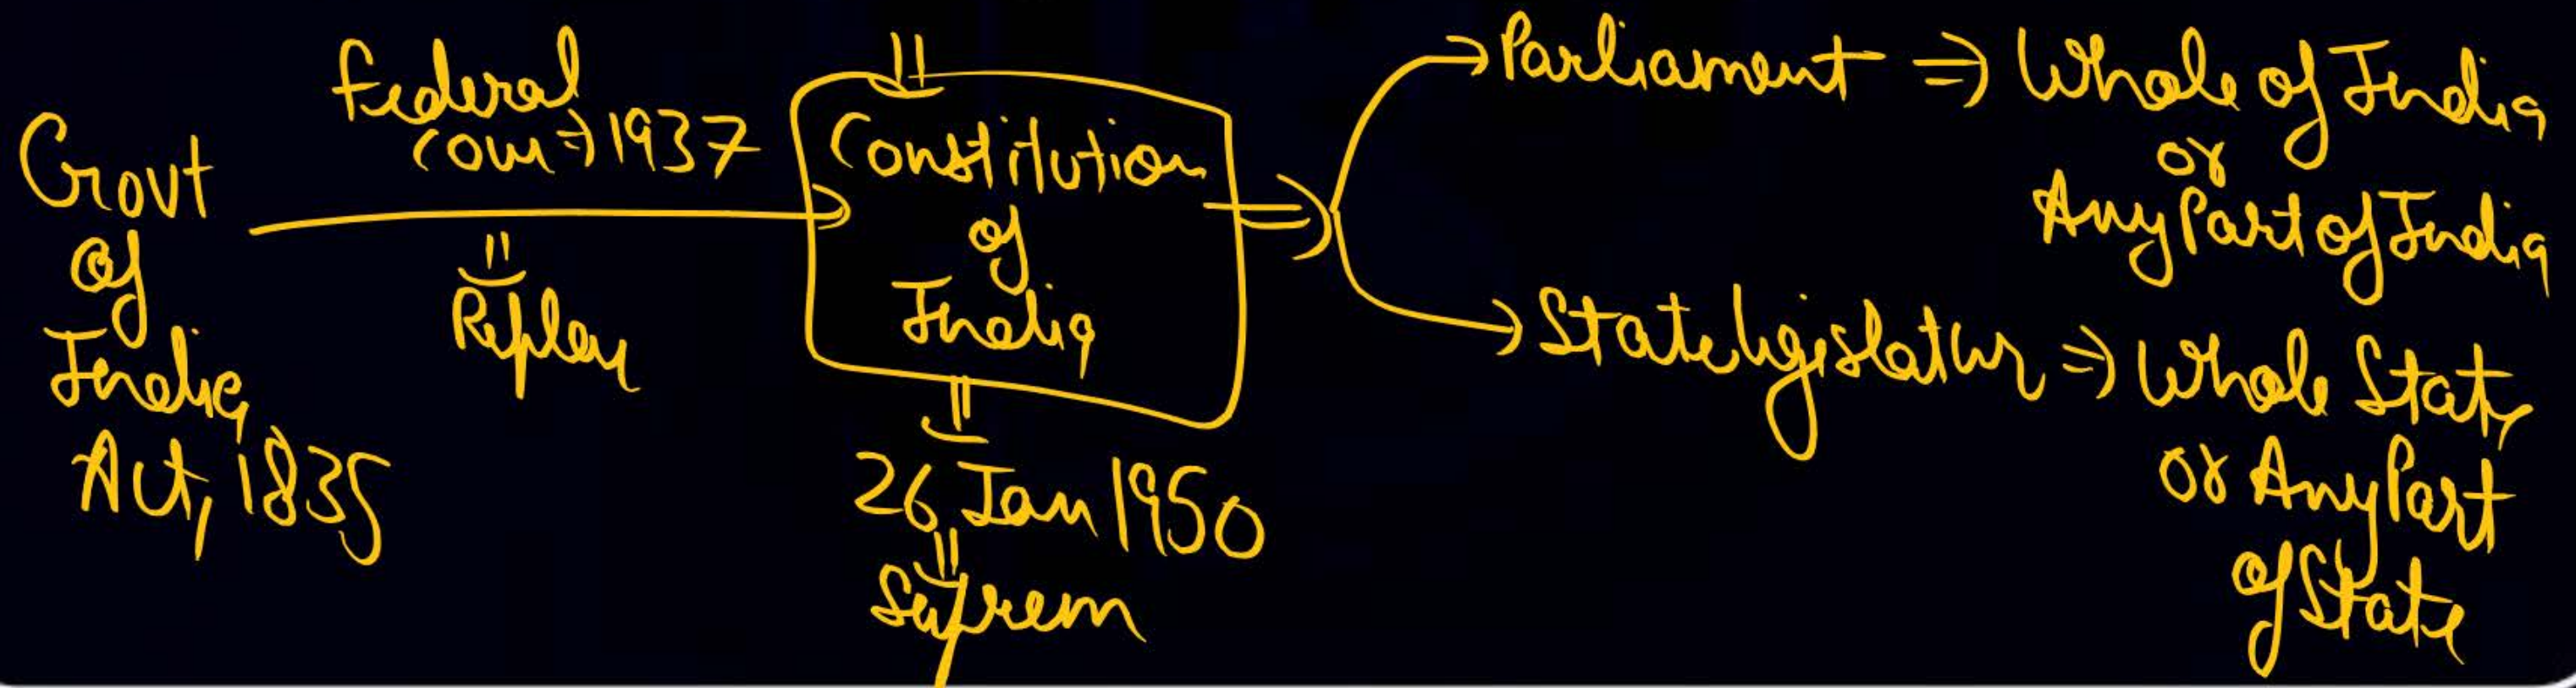 Govt
of
India
Act, 1835
Federal
Cour => 1937
Replace
Constitution
of
India
26 Jan 1950
Suprem
Parliament => Whole of India
or
Any Part of India
State legislatur => Whole State
or Any Part
of State